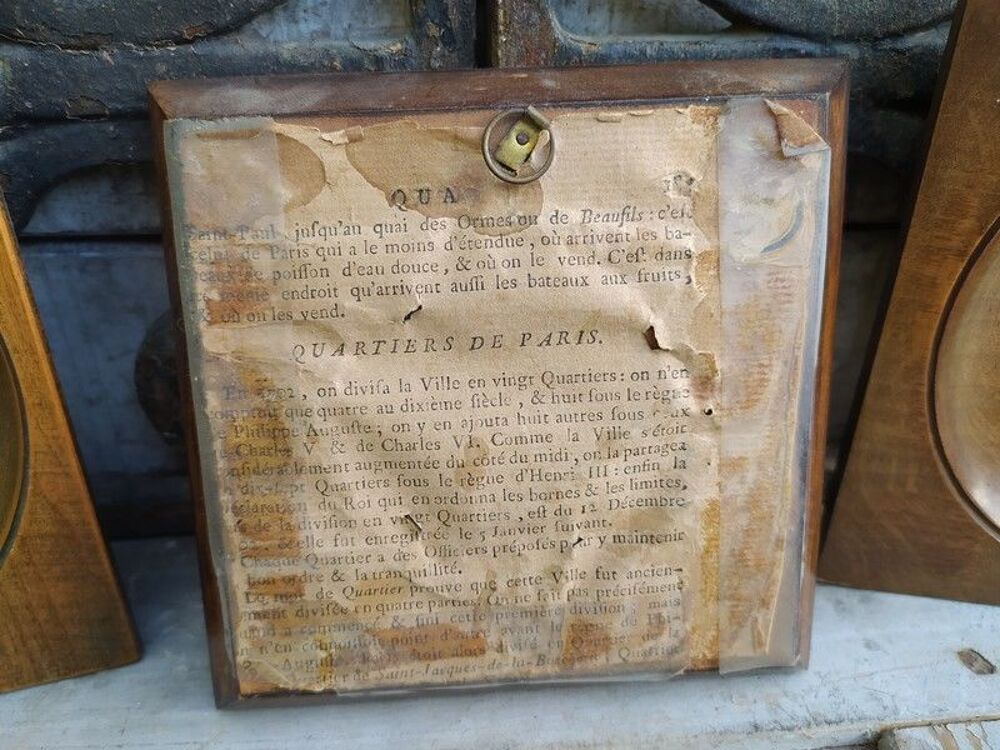 QUA
Saint-Paul, juſqu'au quai des Ormes ou de Beaufils : c'eſt
de Paris qui a le moins d'étendue, où arrivent les ba-
poiſſon d'eau douce, & où on le vend. C'eſt dans
endroit qu'arrivent auſſi les bateaux aux fruits,
& où on les vend.
QUARTIERS DE PARIS.
En 1702, on diviſa la Ville en vingt Quartiers : on n'en
comptoit que quatre au dixieme ſiècle, & huit ſous le règne
Philippe Auguſte ; on y en ajouta huit autres ſous ceux
Charles V & de Charles VI. Comme la Ville s'étoit
conſidérablement augmentée du côté du midi, on la partagea
dix-ſept Quartiers ſous le règne d'Henri III : enfin la
déclaration du Roi qui en ordonna les bornes & les limites,
& de la diviſion en vingt Quartiers, eſt du 12 Décembre
& elle fut enregiſtrée le 5 Janvier ſuivant.
Chaque Quartier a des Officiers prépoſés pour y maintenir
bon ordre & la tranquillité.
Le mot de Quartier prouve que cette Ville fut ancien-
nement diviſée en quatre parties. On ne ſait pas préciſément
quand a commencé & fini cette première diviſion ; mais
on n'en connoiſſoit point d'autre avant le règne de Phi-
Auguſte. Paris étoit alors diviſé en Quartier de la
Quartier de Saint-Jacques-de-la-Boucherie, Quartier